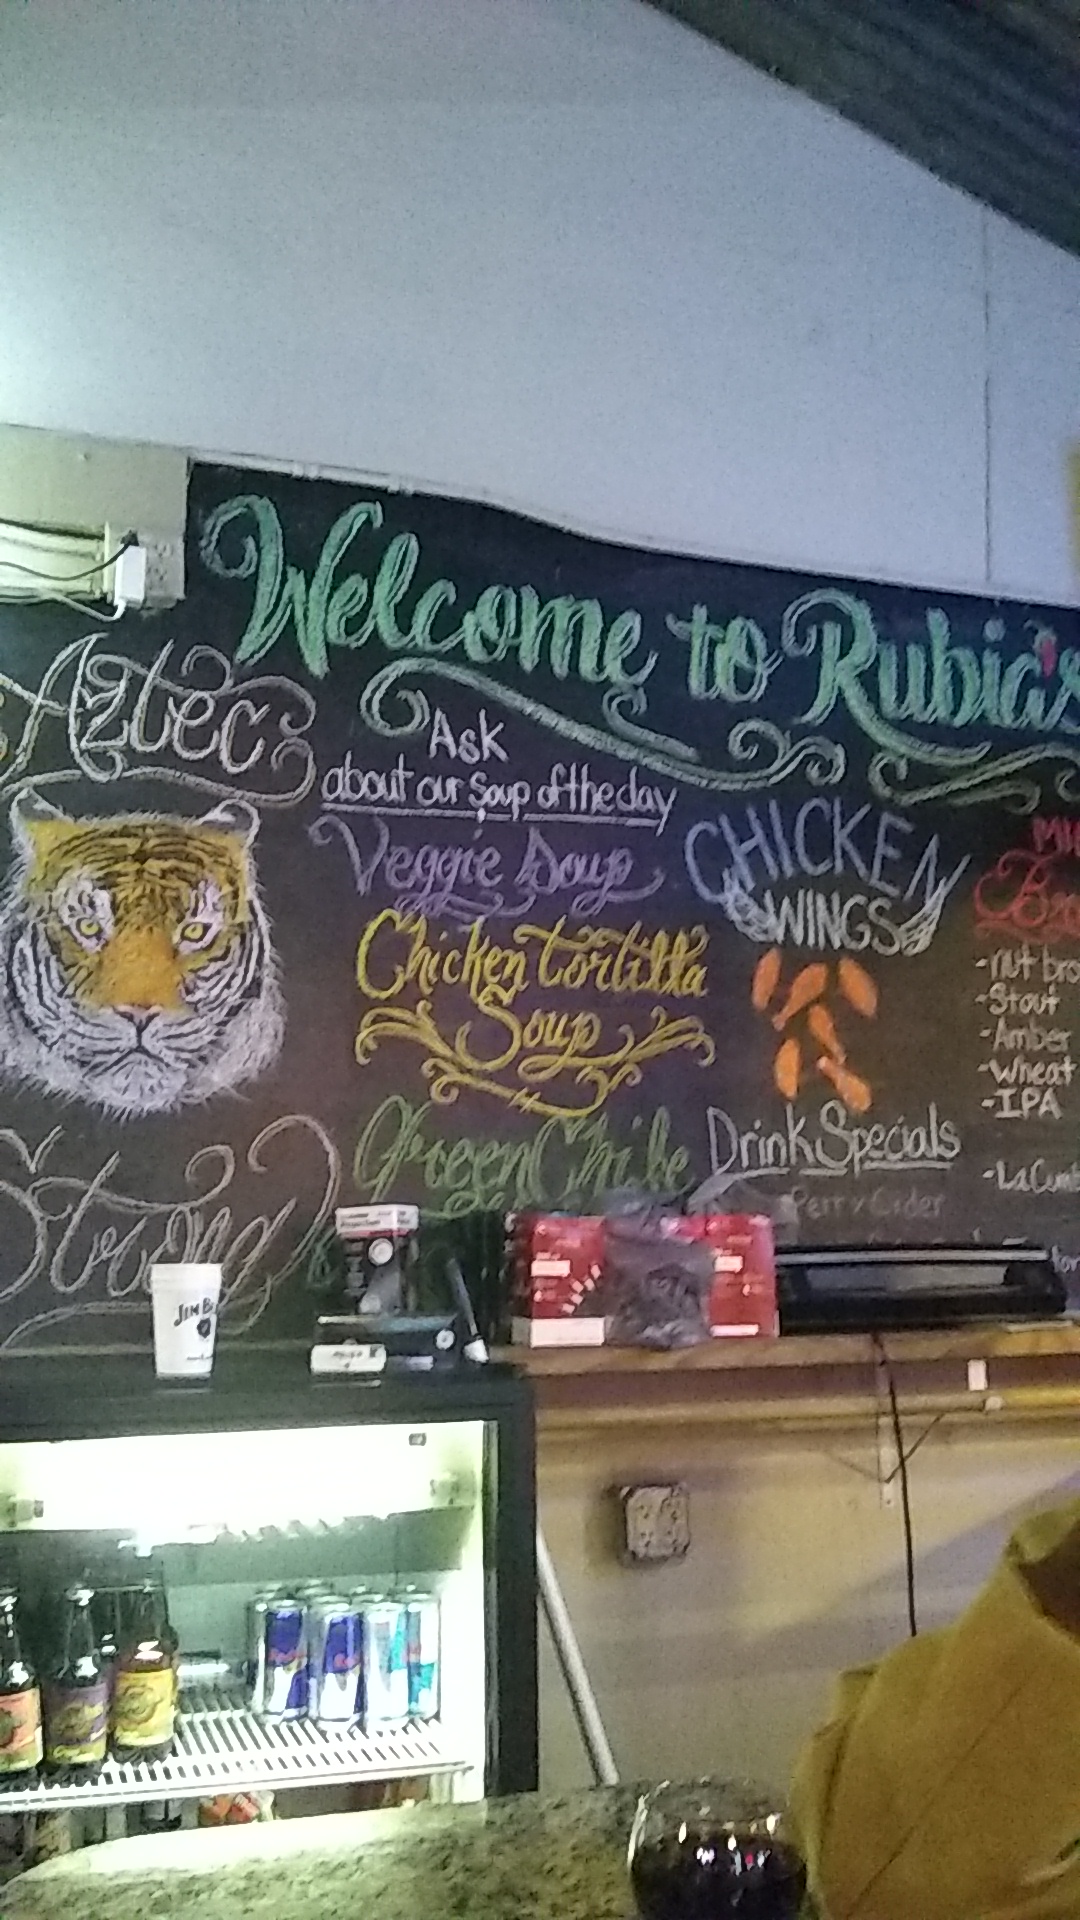 Welcome to Rubia's
Aztec
Strong
Ask
about our Soup of the day
Veggie Soup
Chicken Tortilla
Soup
Green Chile
CHICKEN
WINGS
Drink Specials
Perry Cider
-Stout
-Amber
-Wheat
-IPA
JIM